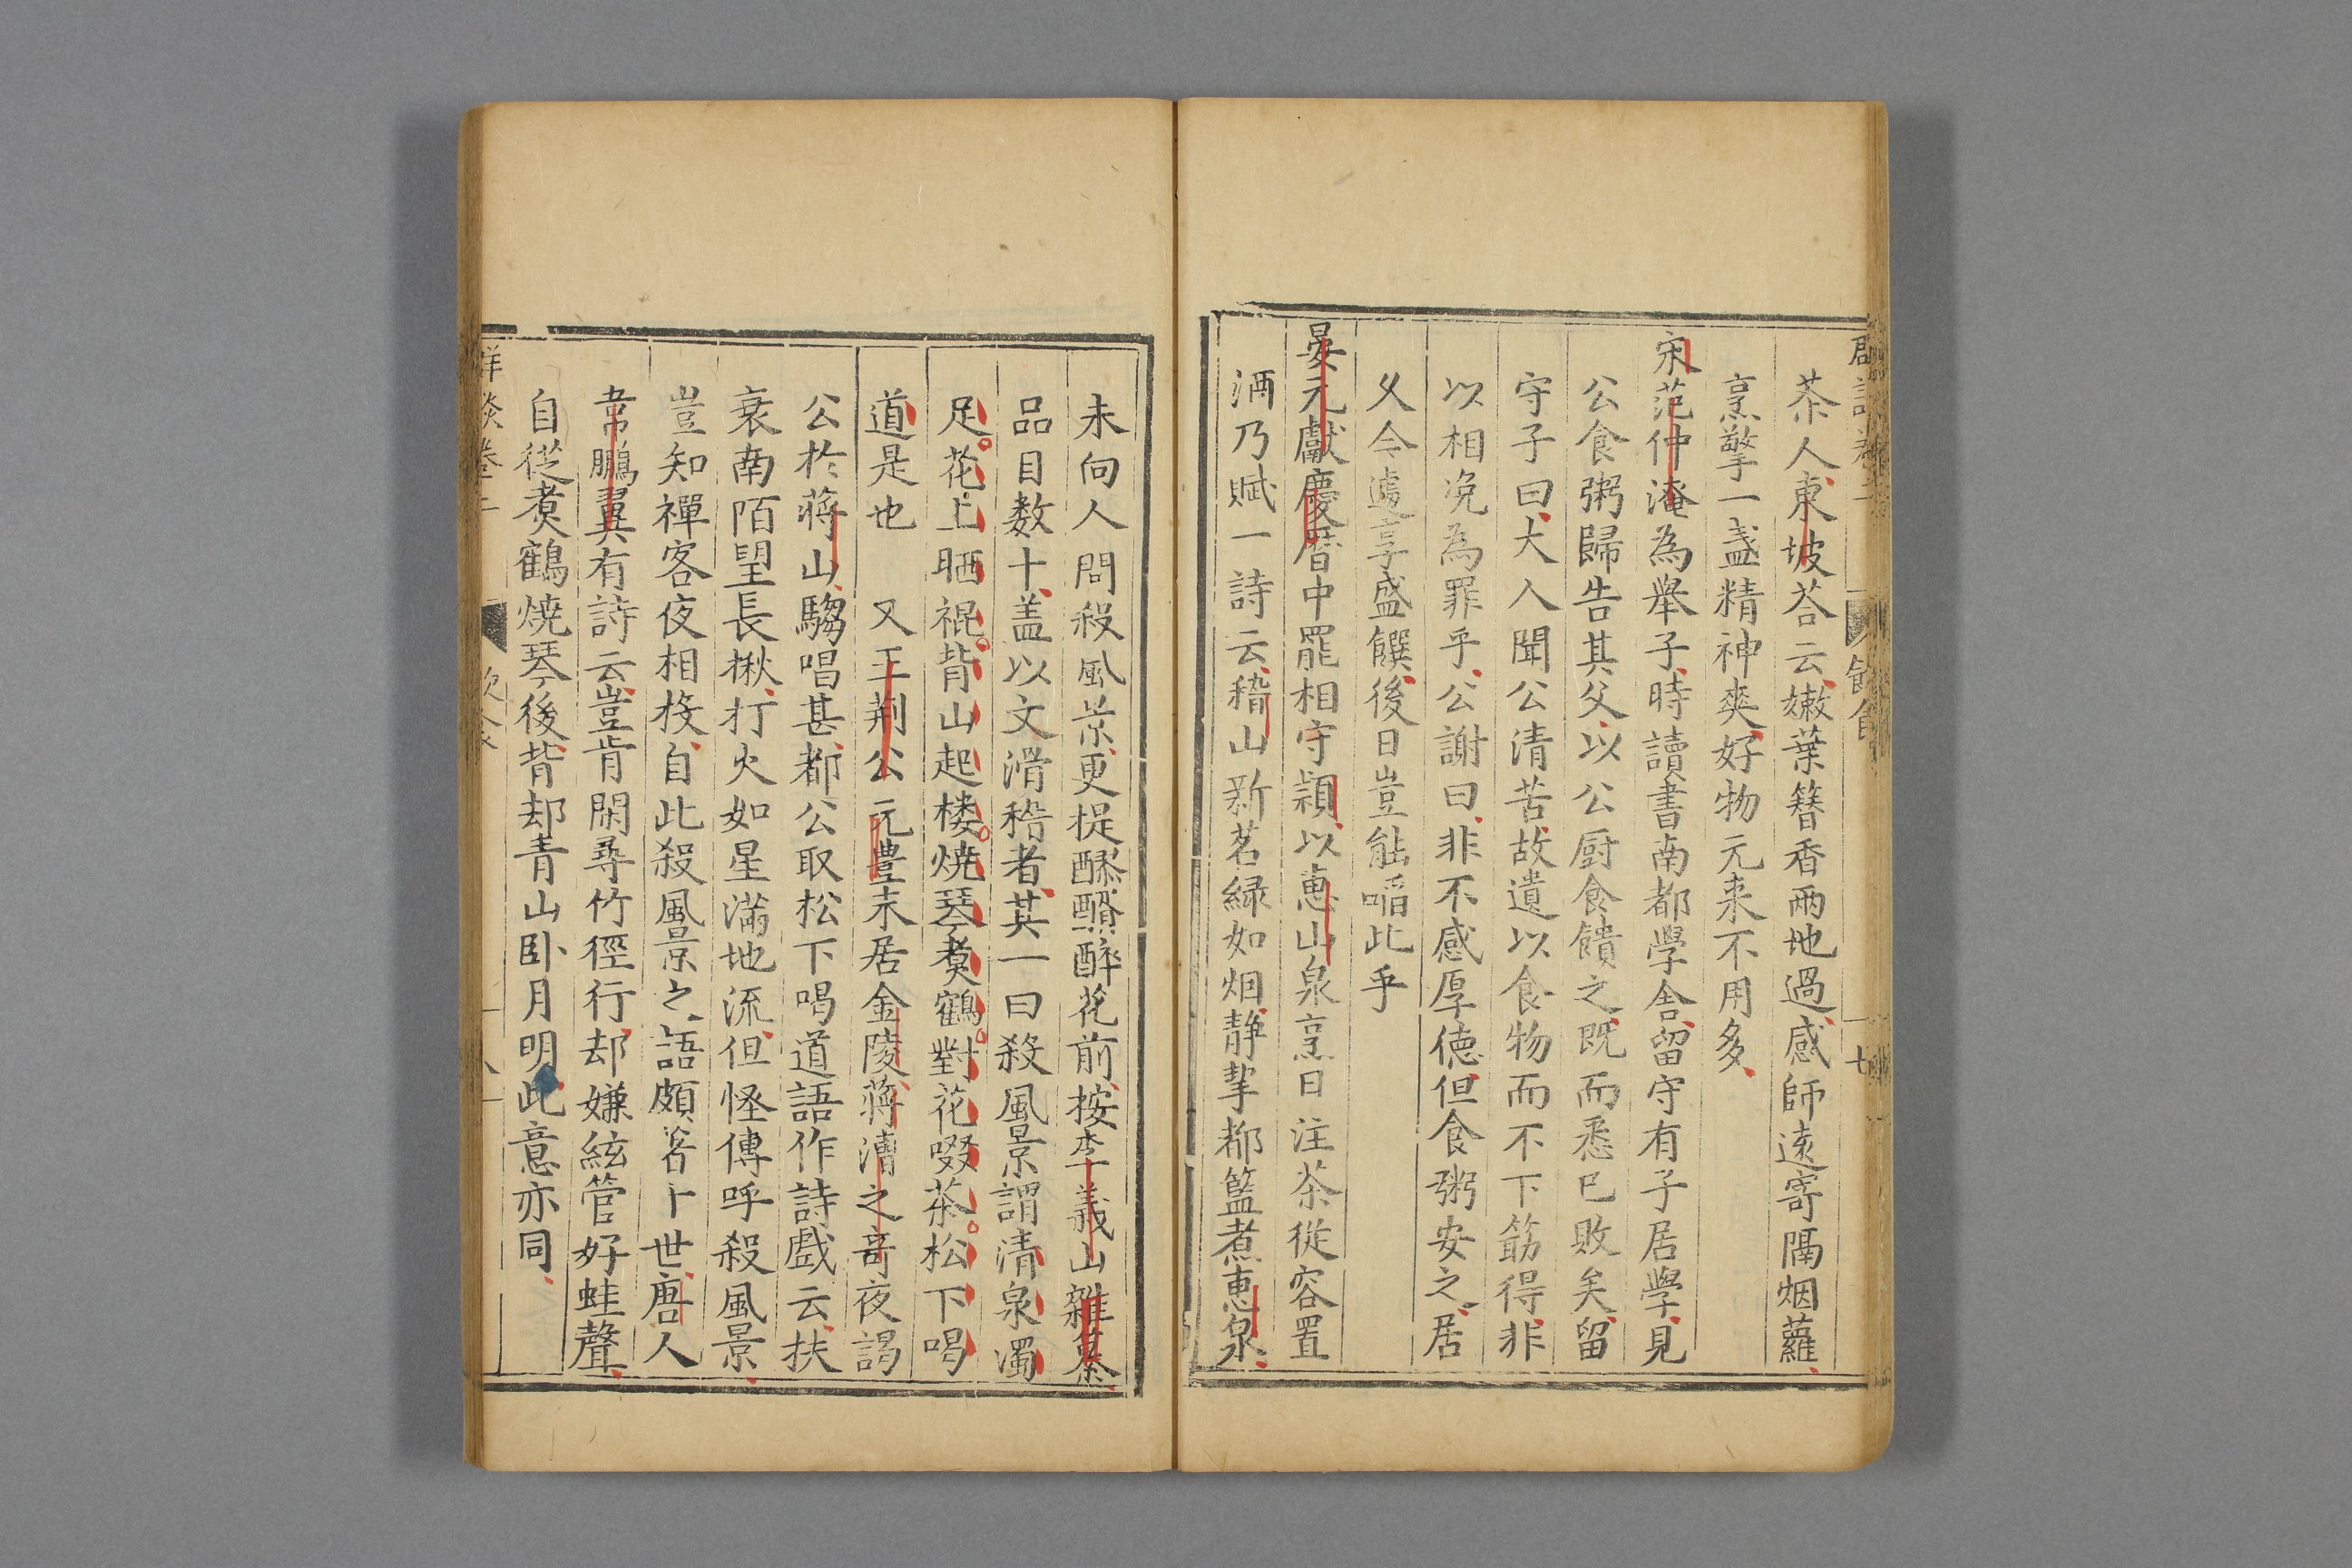 茶人東坡荅云嫩葉簮香兩地過感師遠寄隔烟蘿
烹擎一盞精神爽好物元来不用多
宋范仲淹為舉子時讀書南都學舎留守有子居學見
公食粥歸告其父以公厨食饋之既而悉已敗矣留
守子曰大人聞公清苦故遺以食物而不下筯得非
以相凂為罪乎公謝曰非不感厚徳但食粥安之居
父今遽享盛饌後日豈能啗此乎
晏元獻慶暦中罷相守頴以惠山泉烹日注茶從容置
酒乃賦一詩云稽山新茗緑如烟静挈都籃煮惠泉
未向人間殺風景更提醪醑醉花前按李義山雜纂
品目数十盖以文滑稽者其一曰殺風景謂清泉濯
足花上晒裩背山起楼焼琴煑鶴對花啜茶松下喝
道是也　又王荆公元豊末居金陵蔣漕之竒夜謁
公於蔣山騶唱甚都公取松下喝道語作詩戲云扶
衰南陌望長楸打火如星滿地流但怪傳呼殺風景
豈知禪客夜相投自此殺風景之語頗著于世唐人
韋鵬翼有詩云豈肯閑尋竹徑行却嫌絃管好蛙聲
自從煑鶴焼琴後背却青山卧月明此意亦同